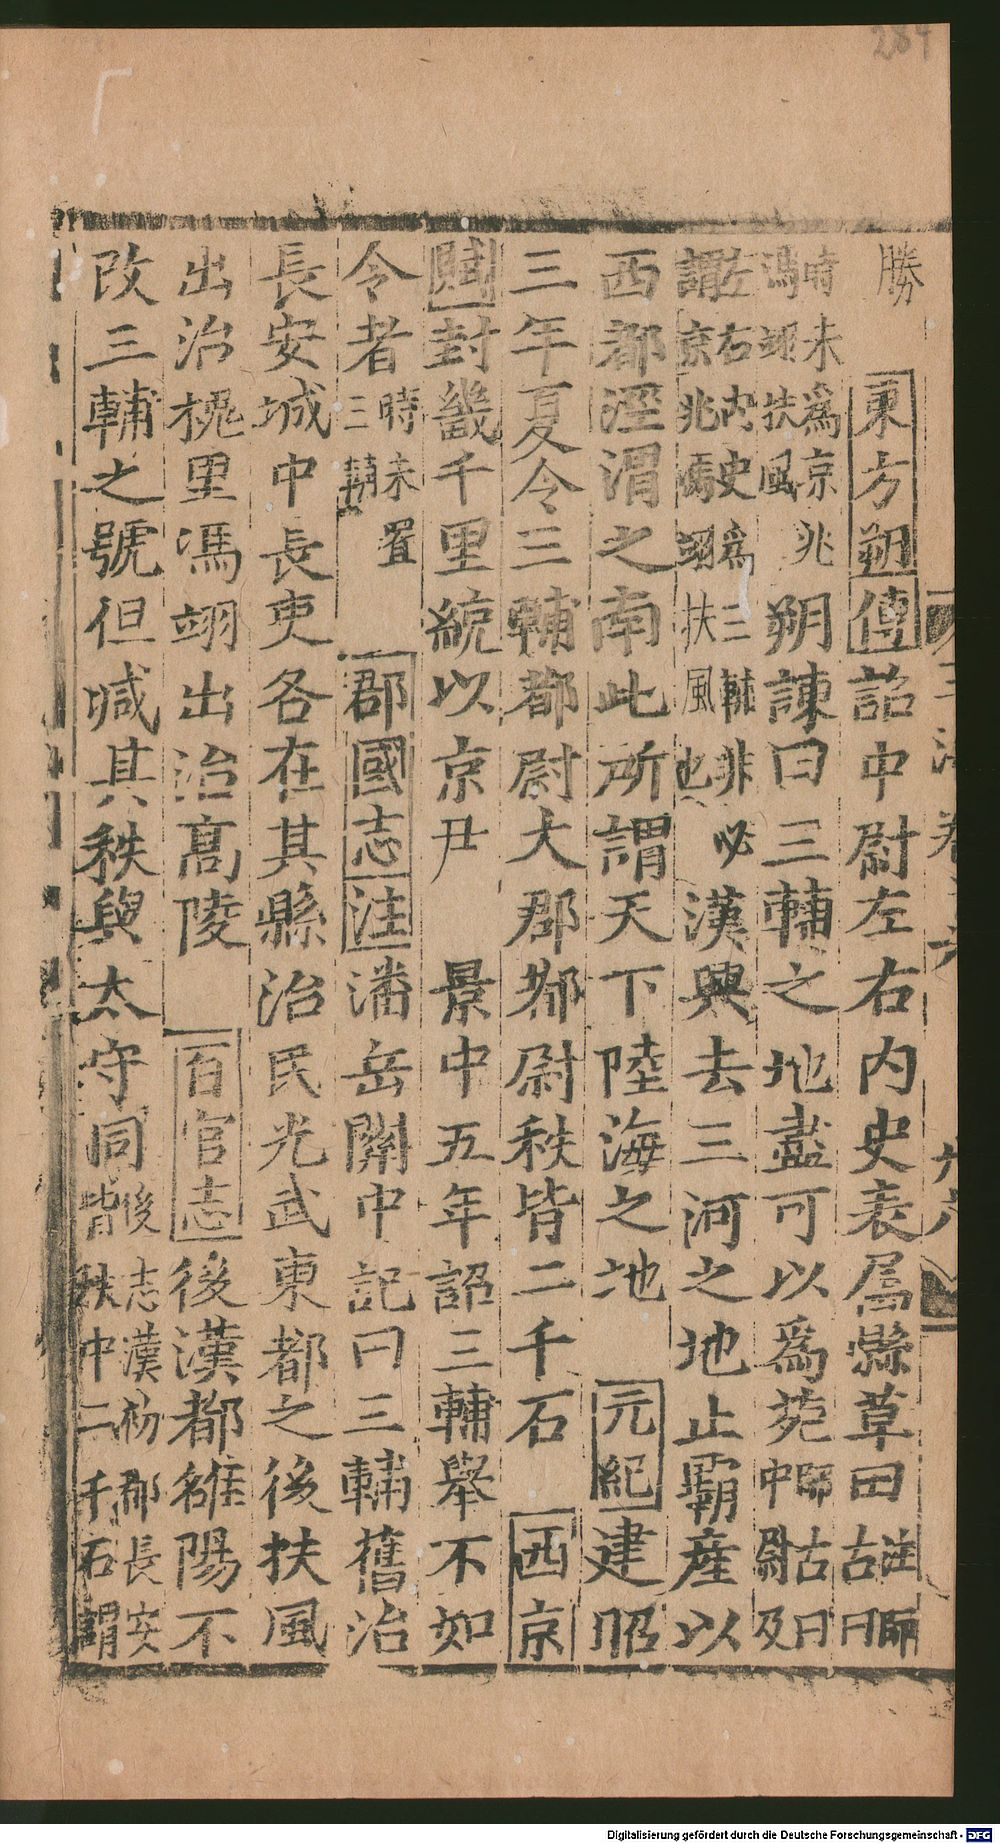 284
勝 東方朔傳詔中尉左右内史表屬縣草田注師古曰
時未爲京兆馮翊扶風朔諫曰三輔之地盡可以爲苑師古曰中尉及
左右内史爲三輔非必謂京兆馮翊扶風也漢興去三河之地止霸産以
西都涇渭之南此所謂天下陸海之地 元紀建昭
三年夏令三輔都尉大郡都尉秩皆二千石 西京
賦封畿千里統以京尹 景中五年詔三輔舉不如
令者時未置三輔 郡國志注潘岳關中記曰三輔舊治
長安城中長吏各在其縣治民光武東都之後扶風
出治槐里馮翊出治高陵 百官志後漢都雒陽不
改三輔之號但減其秩與太守同後志漢初郡長安皆秩中二千石謂
Digitalisierung gefördert durch die Deutsche Forschungsgemeinschaft - DFG